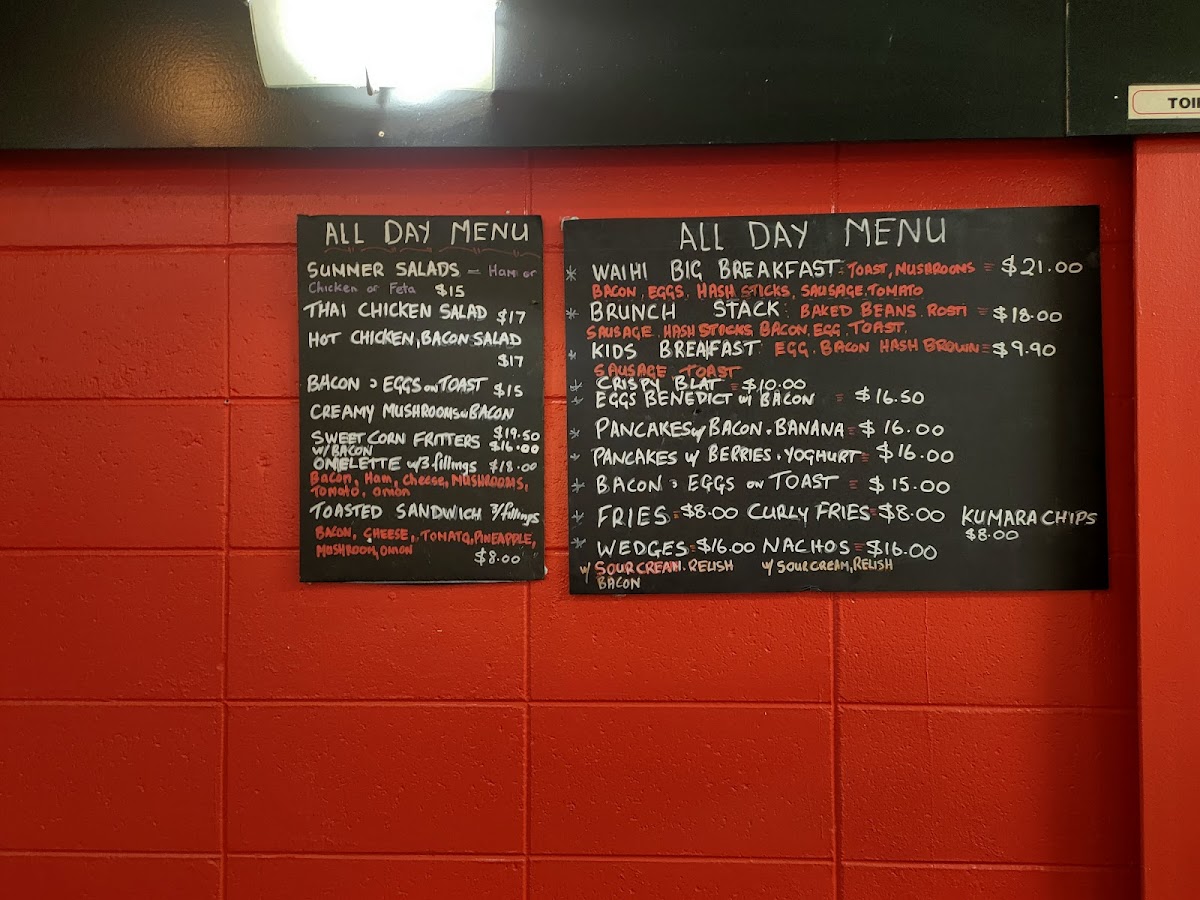 TOI
ALL DAY MENU
SUMMER SALADS - Ham or
Chicken or Feta $15
THAI CHICKEN SALAD $17
HOT CHICKEN, BACON SALAD
$17
BACON & EGGS on TOAST $15
CREAMY MUSHROOMS w BACON
$19.50
SWEET CORN FRITTERS $16.00
w/ BACON
OMELETTE w/ 3 fillings $18.00
Bacon, Ham, Cheese, MUSHROOMS,
Tomato, onion
TOASTED SANDWICH 3/fillings
BACON, CHEESE, TOMATO, PINEAPPLE,
MUSHROOM, ONION
$8.00
ALL DAY MENU
* WAIHI BIG BREAKFAST: TOAST, MUSHROOMS = $21.00
BACON, EGGS, HASH STICKS, SAUSAGE, TOMATO
* BRUNCH STACK: BAKED BEANS. ROSTI = $18.00
SAUSAGE. HASH STICKS BACON. EGG. TOAST.
* KIDS BREAFAST EGG. BACON HASH BROWN = $9.90
SAUSAGE TOAST
* CRISPY BLAT = $10.00
* EGGS BENEDICT w/ BACON = $16.50
* PANCAKES w/ BACON & BANANA = $16.00
* PANCAKES w BERRIES & YOGHURT = $16.00
* BACON & EGGS on TOAST = $15.00
* FRIES = $8.00 CURLY FRIES = $8.00 KUMARA CHIPS
$8.00
* WEDGES = $16.00 NACHOS = $16.00
w/ SOUR CREAM. RELISH w/ SOUR CREAM, RELISH
BACON